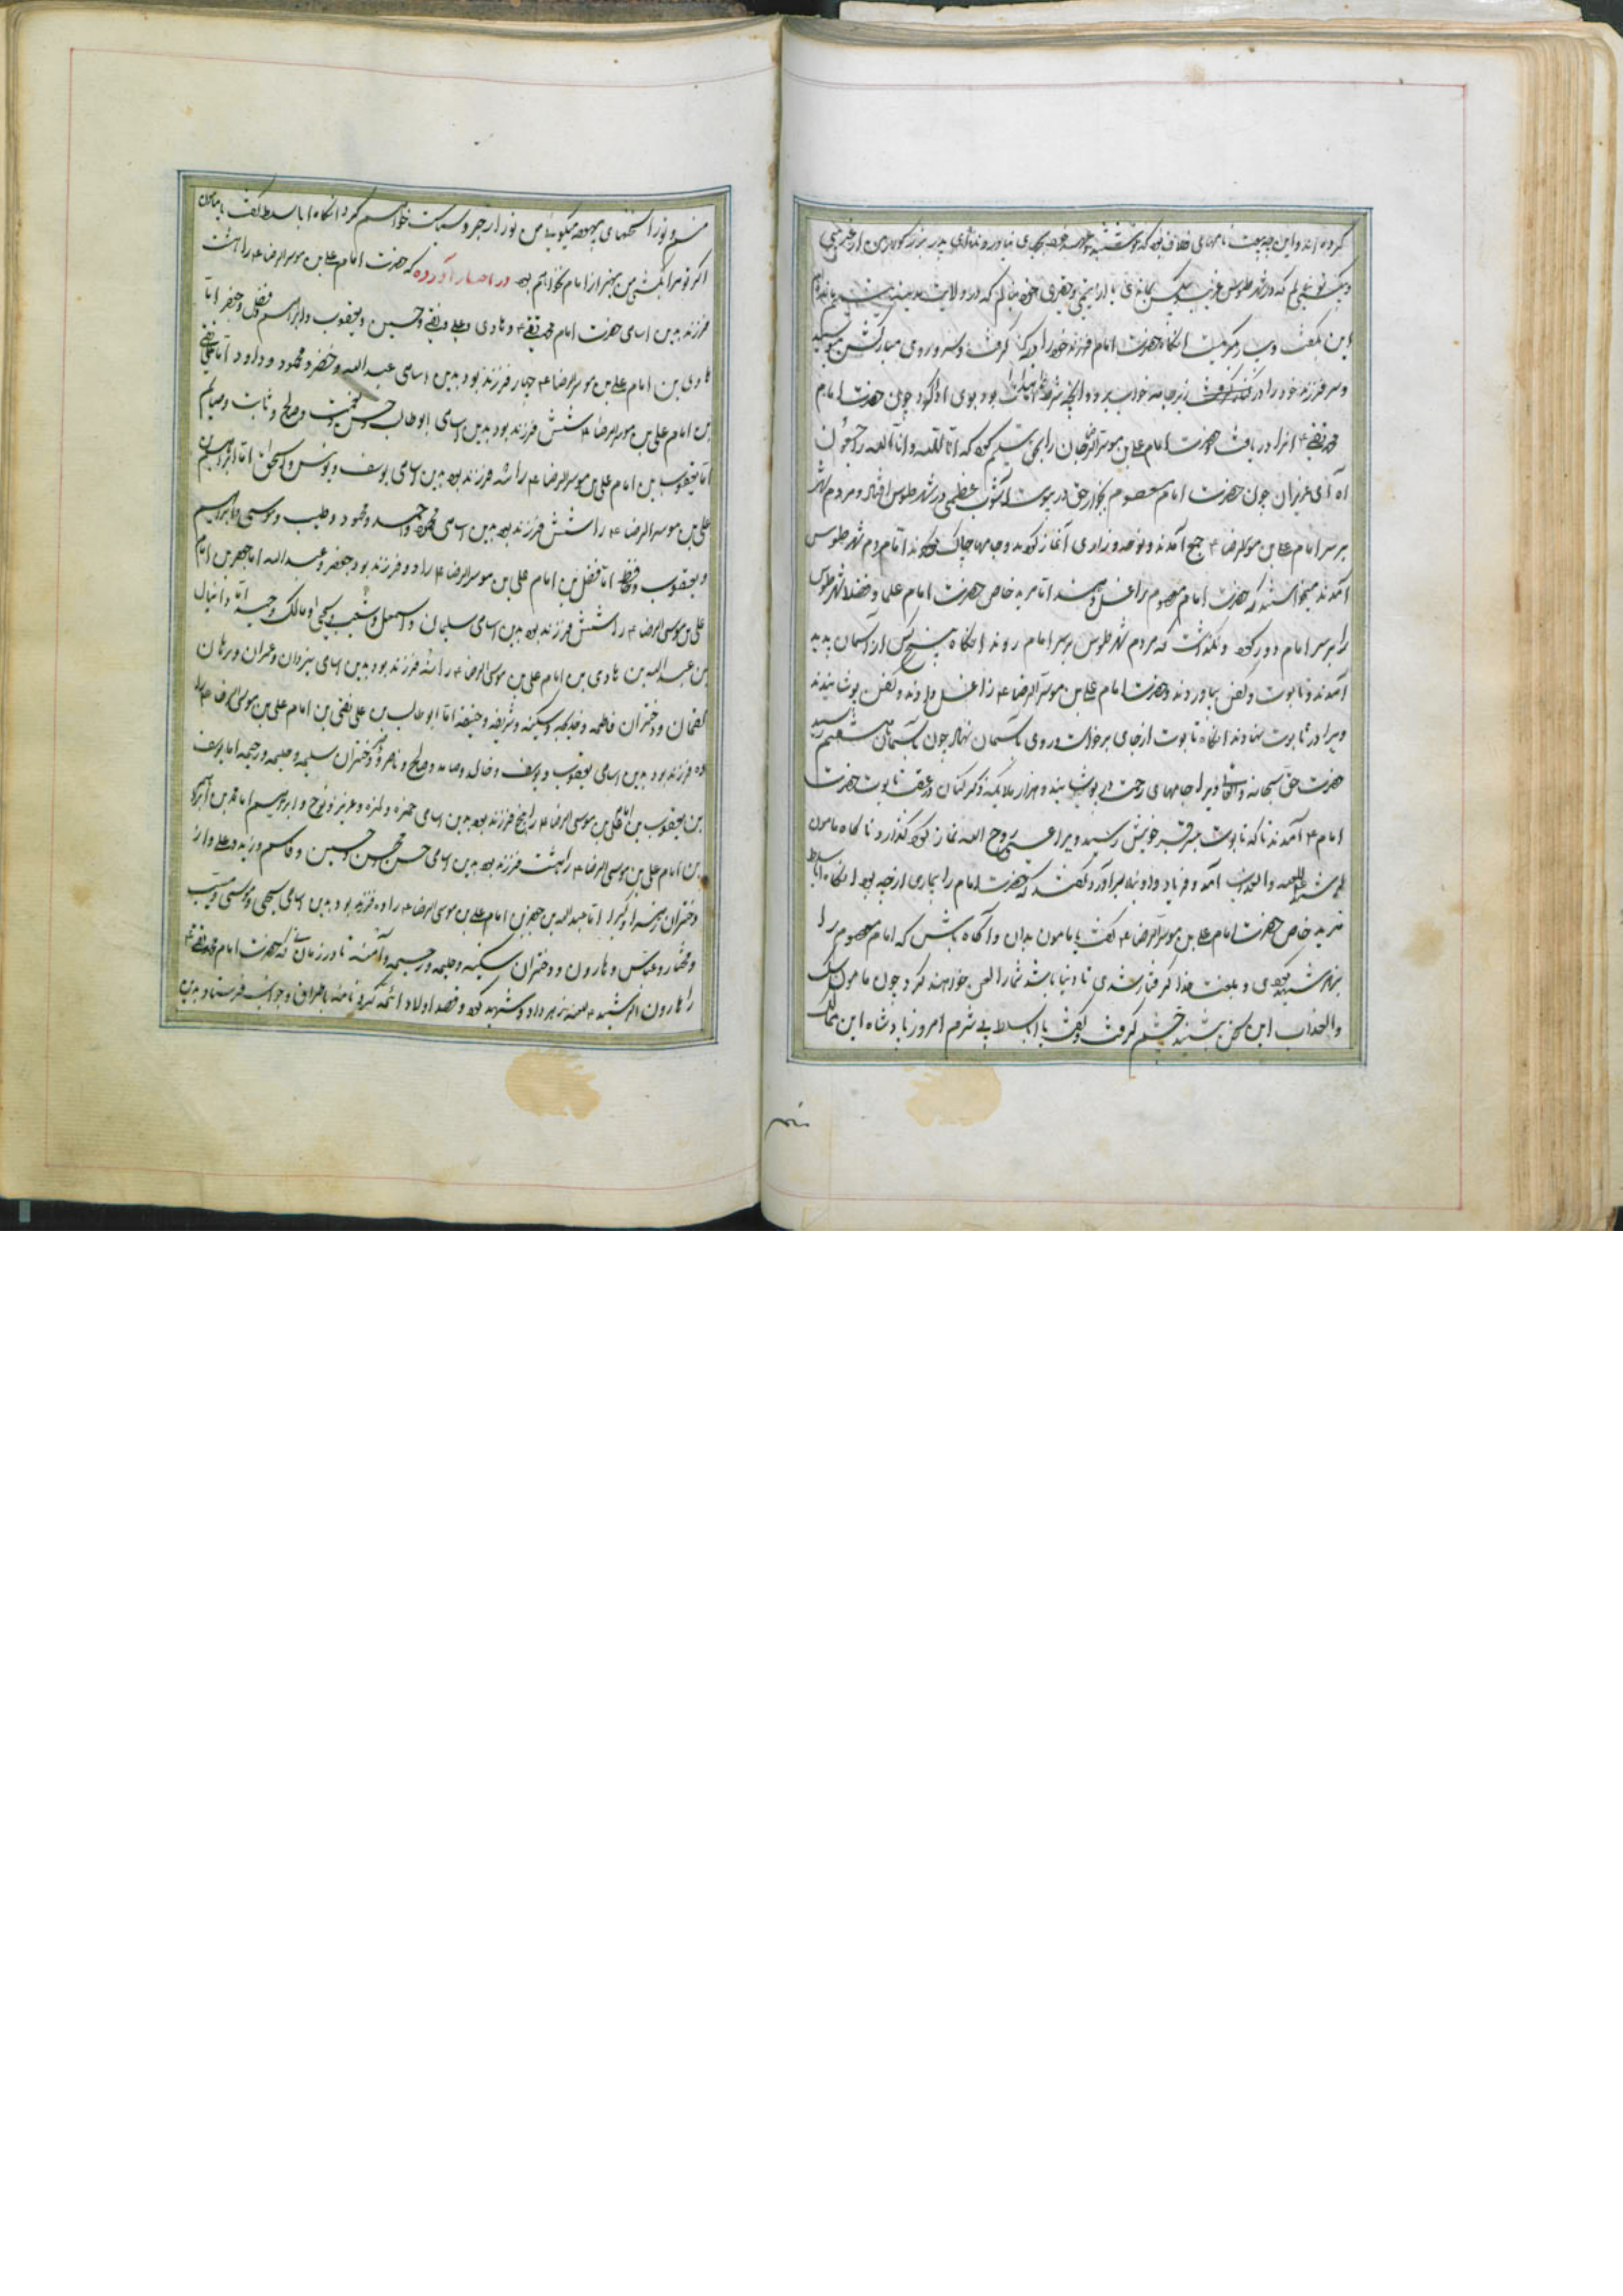 کرده اند و این چه بیعت نامهای خلاف بود که نوشتند
و میگفت که در شهر طوس غریب بیکس بماندی یا از یتیمی و فقیری خود بنالم که در ولایت مدینه یتیم ماندم
این بگفت و میگریست آنگاه حضرت امام فرزند خود را در کنار گرفت و سر و روی مبارکش میبوسید
و سر فرزند خود را در زیر جامه خواب برد و آنچه شرط امامت بود بوی چون حضرت امام
محمد تقی ع آنرا دریافت حضرت امام علی بن موسی الرضا جان را بحق تسلیم کرد که انا لله و انا الیه راجعون
آه ای عزیزان چون حضرت امام معصوم بجوار حق در پیوست آشوب عظیمی در شهر طوس افتاد و مردم شهر
بر سر امام علی بن موسی الرضا ع جمع آمدند و نوحه و زاری آغاز کردند و جامها چاک کردند اما مردم شهر طوس
آمدند میخواستند که حضرت امام معصوم را غسل دهند اما مرید خاص حضرت امام علی و فضلا شهر طوس
را بر سر امام دور کرد و نگذاشت که مردم شهر طوس بر سر امام روند آنگاه پنج کس از آسمان پدید
آمدند و تابوت و کفن بیاوردند و حضرت امام علی بن موسی الرضا ع را غسل دادند و کفن پوشانیدند
و ویرا در تابوت نهادند آنگاه تابوت از جای برخواست و روی بآسمان نهاد چون بآسمان هشتم رسید
حضرت حق سبحانه و تعالی ویرا جامهای رحمت در پوشانید و هزار ملایکه ذکر کنان در عقب تابوت حضرت
امام ع آمدند تا که تابوت بر سر قبر خویش رسید ویرا عیسی روح الله نماز کرد ناگاه مامون
علیه اللعنه والعذاب آمد و فریاد و اویلا برآورد گفتند که حضرت امام را بیماری از چه بود آنگاه اباسلط
مرید خاص حضرت امام علی بن موسی الرضا ع گفت یا مامون بدان و آگاه باش که امام معصوم را
بزهر شهید کردی و بلعنت خدا گرفتار شدی تا دنیا باشد شما را لعن خواهند کرد چون مامون سگ
والعذاب این سخن بشنید خشم گرفت و گفت یا اباسلط بی شرم امروز پادشاه این ممالک
منم و تو را سخنهای بیهوده میگویی من تو را زجر و سیاست خواهم کرد آنگاه اباسلط گفت یا مامون
اگر تو مرا بکشی من بهتر از امام نخواهم بود در اخبار آورده که حضرت امام علی بن موسی الرضا ع را هشت
فرزند بدین اسامی حضرت امام محمد تقی ع و هادی و علی و نقی و حسین و یعقوب و ابراهیم و فضل و جعفر اما
هادی بن امام علی بن موسی الرضا ع چهار فرزند بود بدین اسامی عبدالله و خضر و محمود و داود اما علی نقی
بن امام علی بن موسی الرضا ع شش فرزند بود بدین اسامی ابوطالب حسن و صالح و ثابت و صایم
اما یعقوب بن امام علی بن موسی الرضا ع را سه فرزند بود بدین اسامی یوسف و یونس و اسحق اما ابراهیم بن
علی بن موسی الرضا ع را شش فرزند بود بدین اسامی محمد و احمد و محمود و طیب و موسی و ابراهیم
و یعقوب و حافظ اما فضل بن امام علی بن موسی الرضا ع را دو فرزند بود جعفر و عبدالله اما جعفر بن امام
علی بن موسی الرضا ع را شش فرزند بود بدین اسامی سلیمان و اسمعیل و شعیب و یحیی و مالک اما دانیال
بن عبدالله بن هادی بن امام علی بن موسی الرضا ع را سه فرزند بود بدین اسامی یزدان و عمران و برهان
لقمان و دختران فاطمه و خدیجه و سکینه و شریفه و حنیفه اما ابوطالب بن علی نقی بن امام علی بن موسی الرضا ع را
ده فرزند بود بدین اسامی یعقوب و یوسف و خالد و حامد و صالح و ناصر و دختران سلیمه و حلیمه و رحیمه اما یوسف
بن یعقوب بن امام علی بن موسی الرضا ع را پنج فرزند بود بدین اسامی حمزه و عزیز و نوح و ابراهیم اما محمد بن ابراهیم
بن امام علی بن موسی الرضا ع را هشت فرزند بود بدین اسامی حسن و محسن و حسین و قاسم و زید و علی و از
دختران زهرا و کبرا اما عبدالله بن جعفر بن امام علی بن موسی الرضا ع را ده فرزند بود بدین اسامی یحیی و موسی
و مختار و عباس و هارون و دختران سکینه و حلیمه و رحیمه و آمنه تا در زمانی که حضرت امام محمد تقی ع
را هارون الرشید لعنه زهر داد و شهید کرد و قصد اولاد ائمه کرد و نامه باطراف و جوانب فرستاد بدین
منم